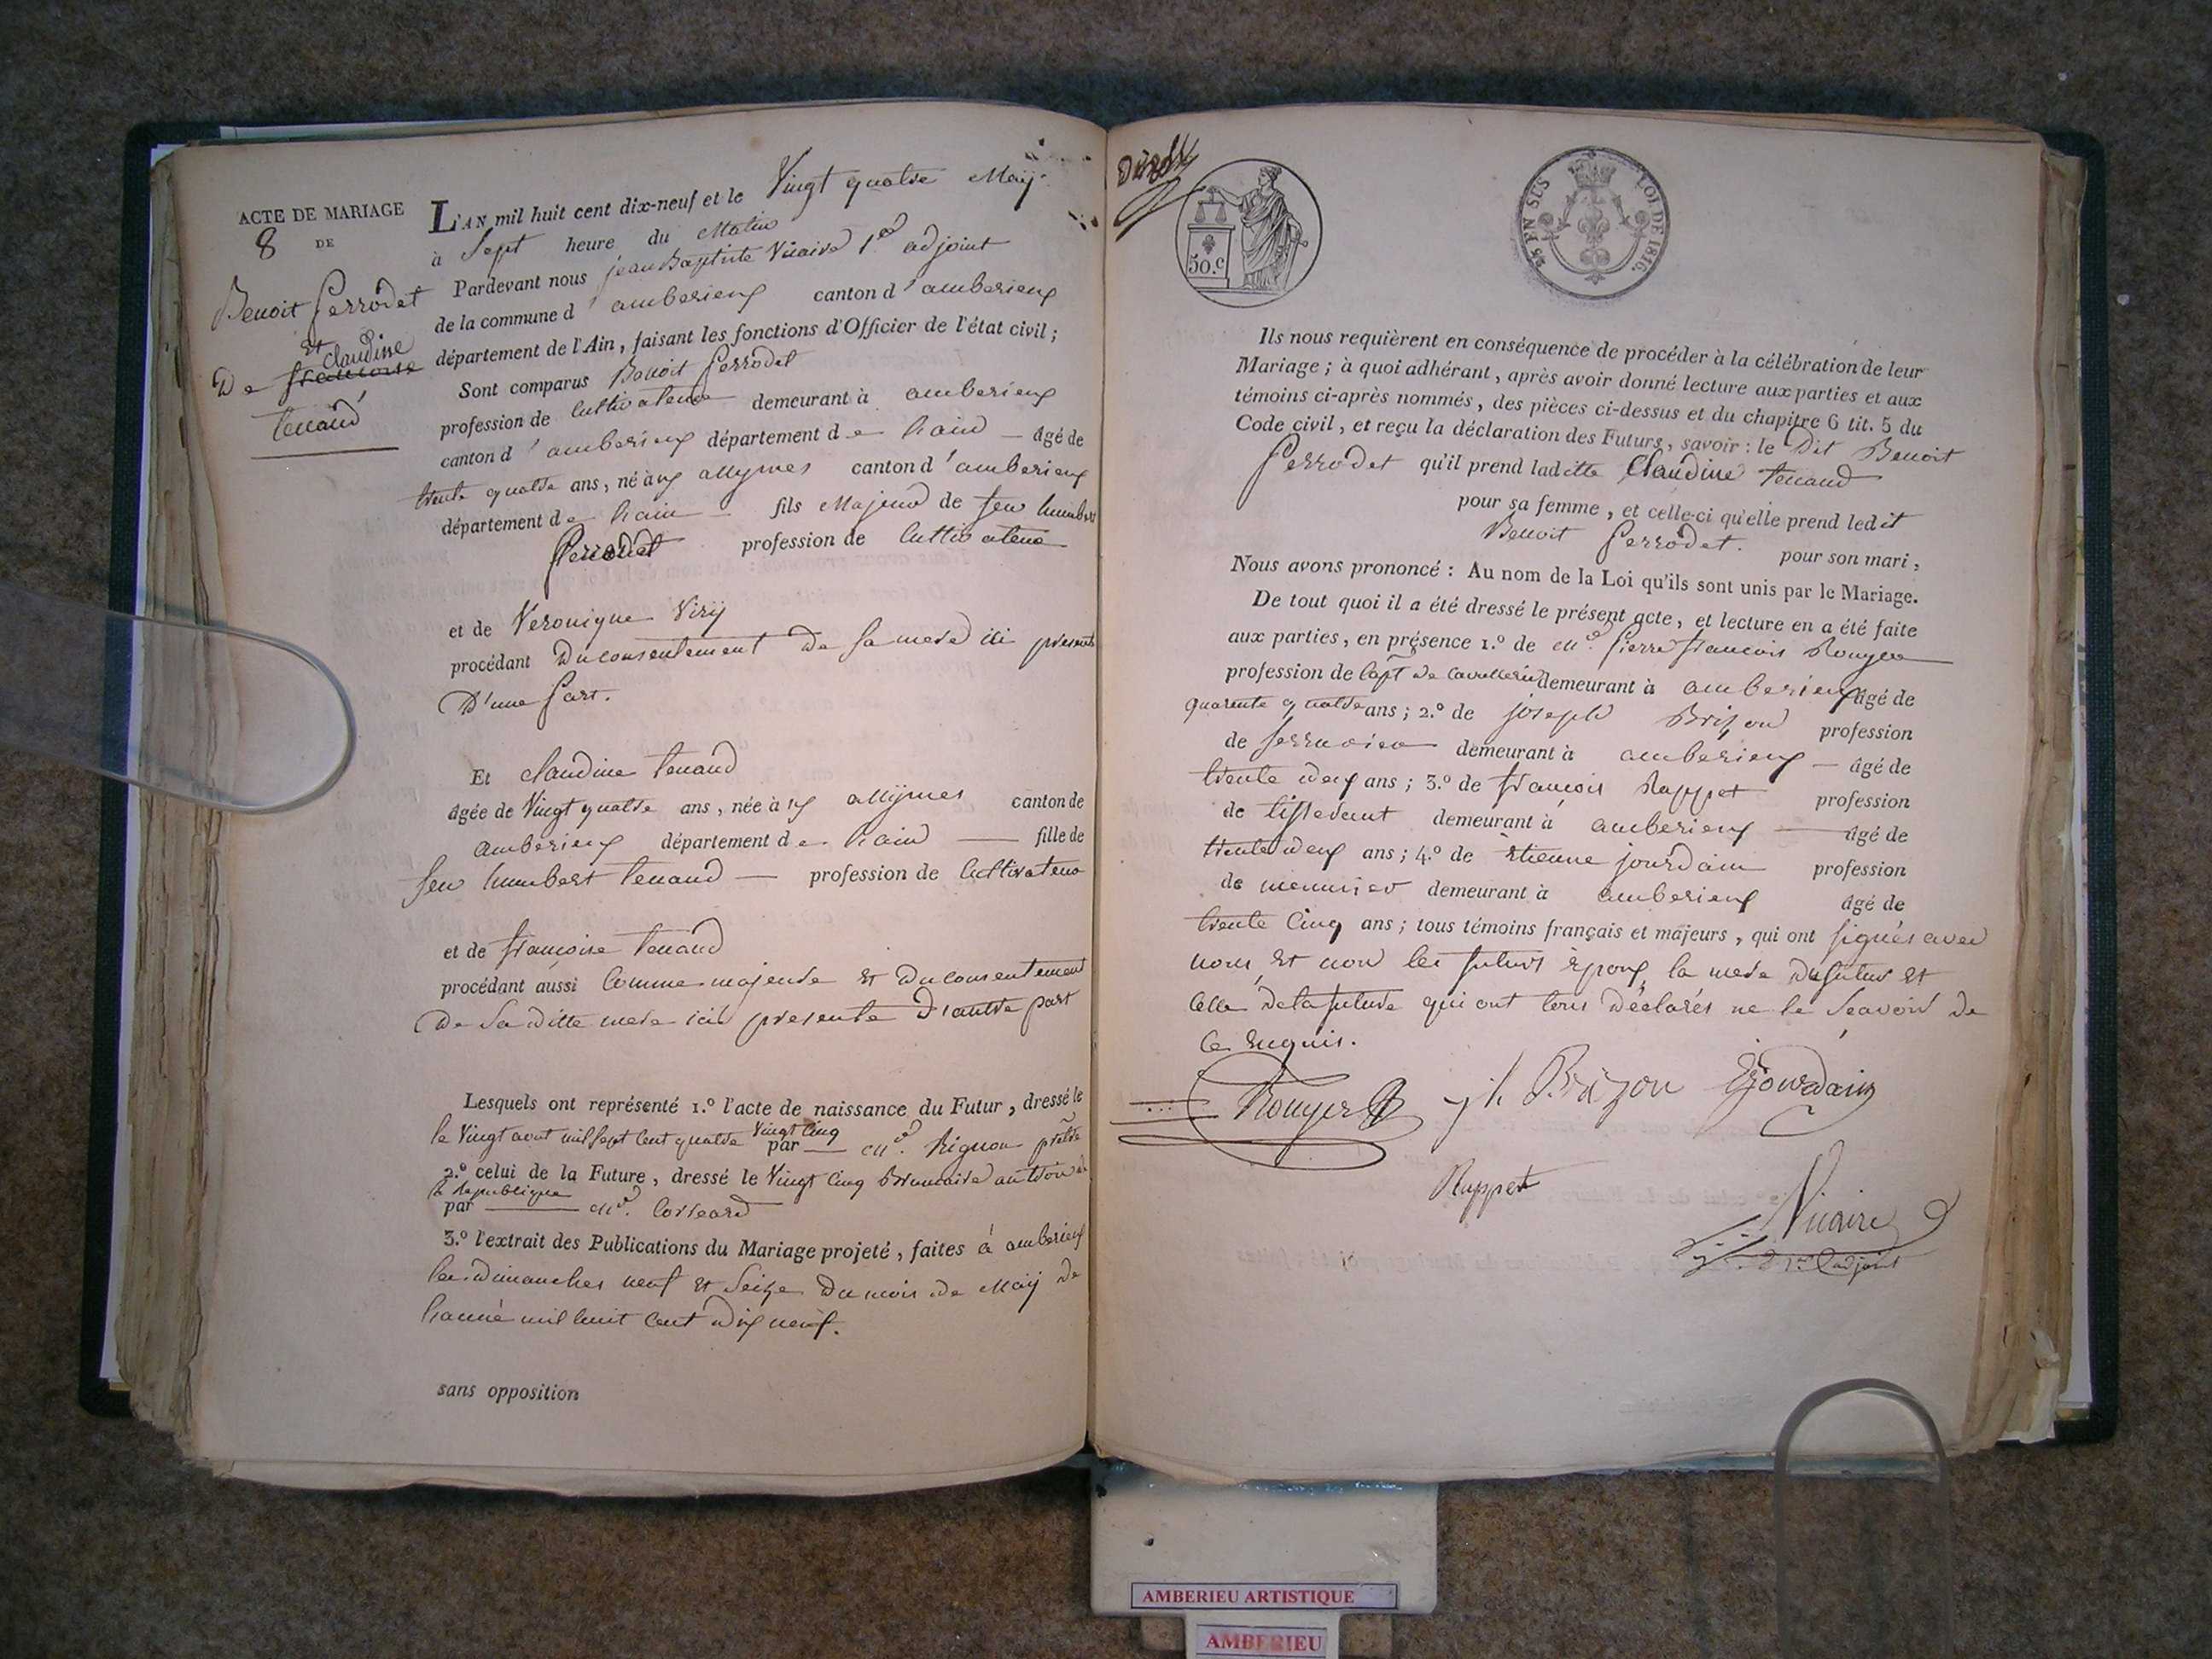 ACTE DE MARIAGE
8 DE
Benoit Perrodet
et
claudine
De francoise
tenand
L'AN mil huit cent dix-neuf et le Vingt quatre Maÿ
à Sept heure du Matin
Pardevant nous jean Baptiste Vicaire 1er adjoint
de la commune d'amberieux canton d'amberieux
département de l'Ain, faisant les fonctions d'Officier de l'état civil;
Sont comparus Benoit Perrodet
profession de Cultivateur demeurant à amberieux
canton d'amberieux département de Lain — âgé de
trente quatre ans, né aux allymes canton d'amberieux
département de Lain — fils Majeur de feu humbert
Perrodet profession de Cultivateur
et de Veronique Virÿ
procédant du consentement de sa mere ici presente
D'une part.
Et claudine tenand
âgée de Vingt quatre ans, née aux allÿmes canton de
amberieux département de Lain — fille de
feu humbert tenand — profession de Cultivateur
et de françoise tenand
procédant aussi Comme majeure et du consentement
De sa ditte mere ici presente D'autre part
Lesquels ont représenté 1.º l'acte de naissance du Futur, dressé le
le Vingt aout mil sept cent quatre Vingt Cinq par — mr. Rignon prêtre
2.º celui de la Future, dressé le Vingt Cinq Brumaire an trois de
la Republique
par — mr.
3.º l'extrait des Publications du Mariage projeté, faites à amberieux
les dimanches neuf et Seize du mois de Maÿ de
Lannée mil huit Cent dix neuf.
sans opposition
50.c
EN SUS
LOI DE 1816.
Ils nous requièrent en conséquence de procéder à la célébration de leur
Mariage; à quoi adhérant, après avoir donné lecture aux parties et aux
témoins ci-après nommés, des pièces ci-dessus et du chapitre 6 tit. 5 du
Code civil, et reçu la déclaration des Futurs, savoir: le Dit Benoit
Perrodet qu'il prend laditte Claudine tenand
pour sa femme, et celle-ci qu'elle prend ledit
Benoit Perrodet. pour son mari,
Nous avons prononcé: Au nom de la Loi qu'ils sont unis par le Mariage.
De tout quoi il a été dressé le présent acte, et lecture en a été faite
aux parties, en présence 1.º de mr. Pierre francois Rouyer
profession de Capt de Cavallerie demeurant à amberieux âgé de
quarente quatre ans; 2.º de joseph Brizon profession
de serrurier demeurant à amberieux — âgé de
trente deux ans; 3.º de francois Rappet profession
de tisserant demeurant à amberieux — âgé de
trente deux ans; 4.º de Etienne jourdain profession
de menuisier demeurant à amberieux âgé de
trente Cinq ans; tous témoins français et majeurs, qui ont signés avec
nous, et non les futurs époux la mere du futur et
Celle de la future qui ont tous déclarés ne le Seavoir de
Ce enquis.
Rouyer jh Brizon Ejourdain
Rappet
Vicaire
1er adjoint
AMBERIEU ARTISTIQUE
AMBERIEU